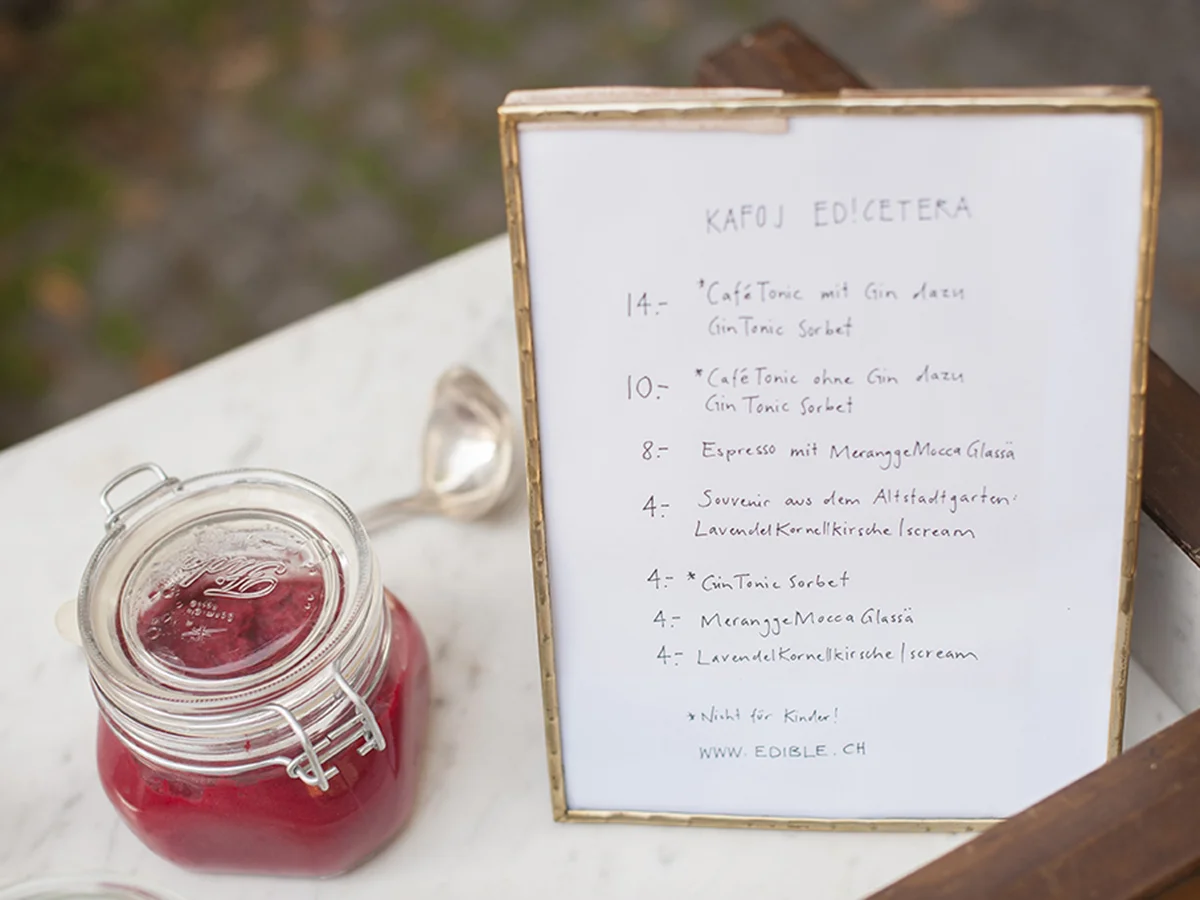 KAFOJ ED!CETERA
14.- *CaféTonic mit Gin dazu
GinTonic Sorbet
10.- *CaféTonic ohne Gin dazu
Gin Tonic Sorbet
8.- Espresso mit MeranggeMocca Glassä
4.- Souvenir aus dem Altstadtgarten:
LavendelKornellkirsche/scream
4.- *GinTonic Sorbet
4.- MeranggeMocca Glassä
4.- LavendelKornellkirsche/scream
*Nicht für Kinder!
WWW.EDIBLE.CH